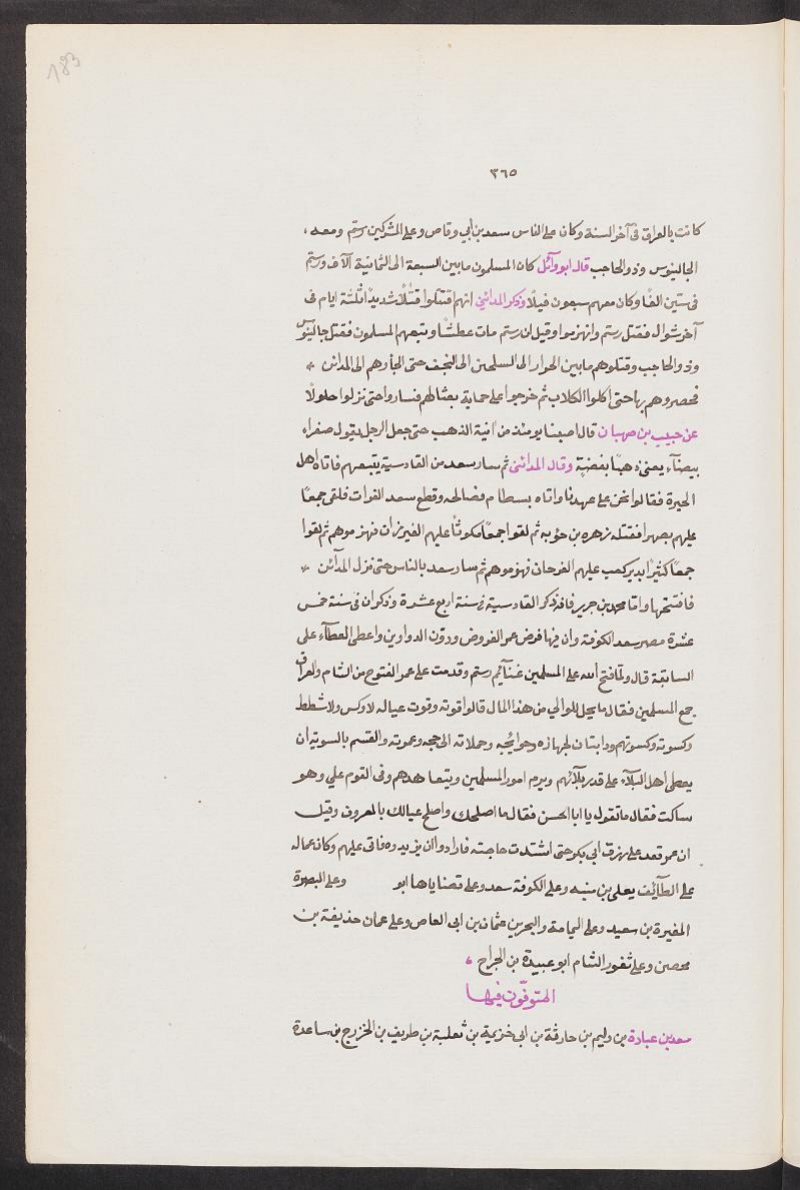 183
٣٦٥
كانت بالعراق فى آخر السنة وكان على الناس سعد بن أبي وقاص وعلى المشركين رستم ومعه
الجالينوس وذو الحاجب قال ابو وآئل كان المسلمون ما بين السبعة الى الثمانية آلآف ورستم
فى ستين الفًا وكان معهم سبعون فيلًا وذكر المدائنى انهم اقتتلوا قتالًا شديدًا ثلثة ايام فى
آخر شوال فقتل رستم وانهزموا وقيل ان رستم مات عطشًا وتبعهم المسلمون فقتل جالينوس
وذو الحاجب وقتلوهم ما بين الحرار الى السلحين الى النجف حتى الجأوهم الى المدائن *
فحصروهم بها حتى اكلوا الكلاب ثم خرجوا على حماية بعيالهم فساروا حتى نزلوا حلولا
عن حبيب بن صهبان قال اصبنا يومئذ من آنية الذهب حتى جعل الرجل يقول صفراء
ببيضآء يعنى ذهبًا بفضة وقال المدائنى ثم سار سعد من القادسية يتبعهم فاتاه اهل
الحيرة فقالوا نحن على عهدنا واتاه بسطام فصالحه وقطع سعد الفرات فلقى جمعًا
عليهم بصهرا فقتله زهره بن حؤيه ثم لقوا جمعًا بكوثا عليهم الفيرزان فهزموهم ثم لقوا
جمعًا كثيرًا بدير كعب عليهم الفرحان فهزموهم ثم سار سعد بالناس حتى نزل المدآئن *
فافتتحها واما محمد بن جرير فانه ذكر القادسية فى سنة اربع عشرة وذكر ان فى سنة خمس
عشرة مصر سعد الكوفة وان فيها فرض عمر الفروض ودوّن الدواوين واعطى العطآء على
السابقة قال ولمّا فتح الله على المسلمين غنآئم رستم وقدمت على عمر الفتوح من الشام والعراق
جمع المسلمين فقال ما يحل للوالي من هذا المال قالوا قوته وقوت عياله لا وكس ولا شطط
وكسوته وكسوتهم ودابتان لجهازه وحوائجه وحملاته الى حجه وعمرته والقسم بالسوية ان
يعطى اهل البلآء على قدر بلآئهم ويرم امور المسلمين ويتعاهدهم وفى القوم علي وهو
ساكت فقال ما تقول يا ابا الحسن فقال ما اصلحك واصلح عيالك بالمعروف وقيل
ان عمر قعد على رزق ابى بكر حتى اشتدت حاجته فارادوا ان يزيدوه فابى عليهم وكان عماله
على الطآئف يعلى بن منيه وعلى الكوفة سعد وعلى قضاياها ابو وعلى البصرة
المغيرة بن سعيد وعلى اليمامة والبحرين عثمان بن ابى العاص وعلى عمان حذيفة بن
محصن وعلى ثغور الشام ابو عبيدة بن الجراح
المتوفّون فيها
سعد بن عبادة بن دليم بن حارثة بن ابى خزيمة بن ثعلبة بن طريف بن الخزرج بن ساعدة